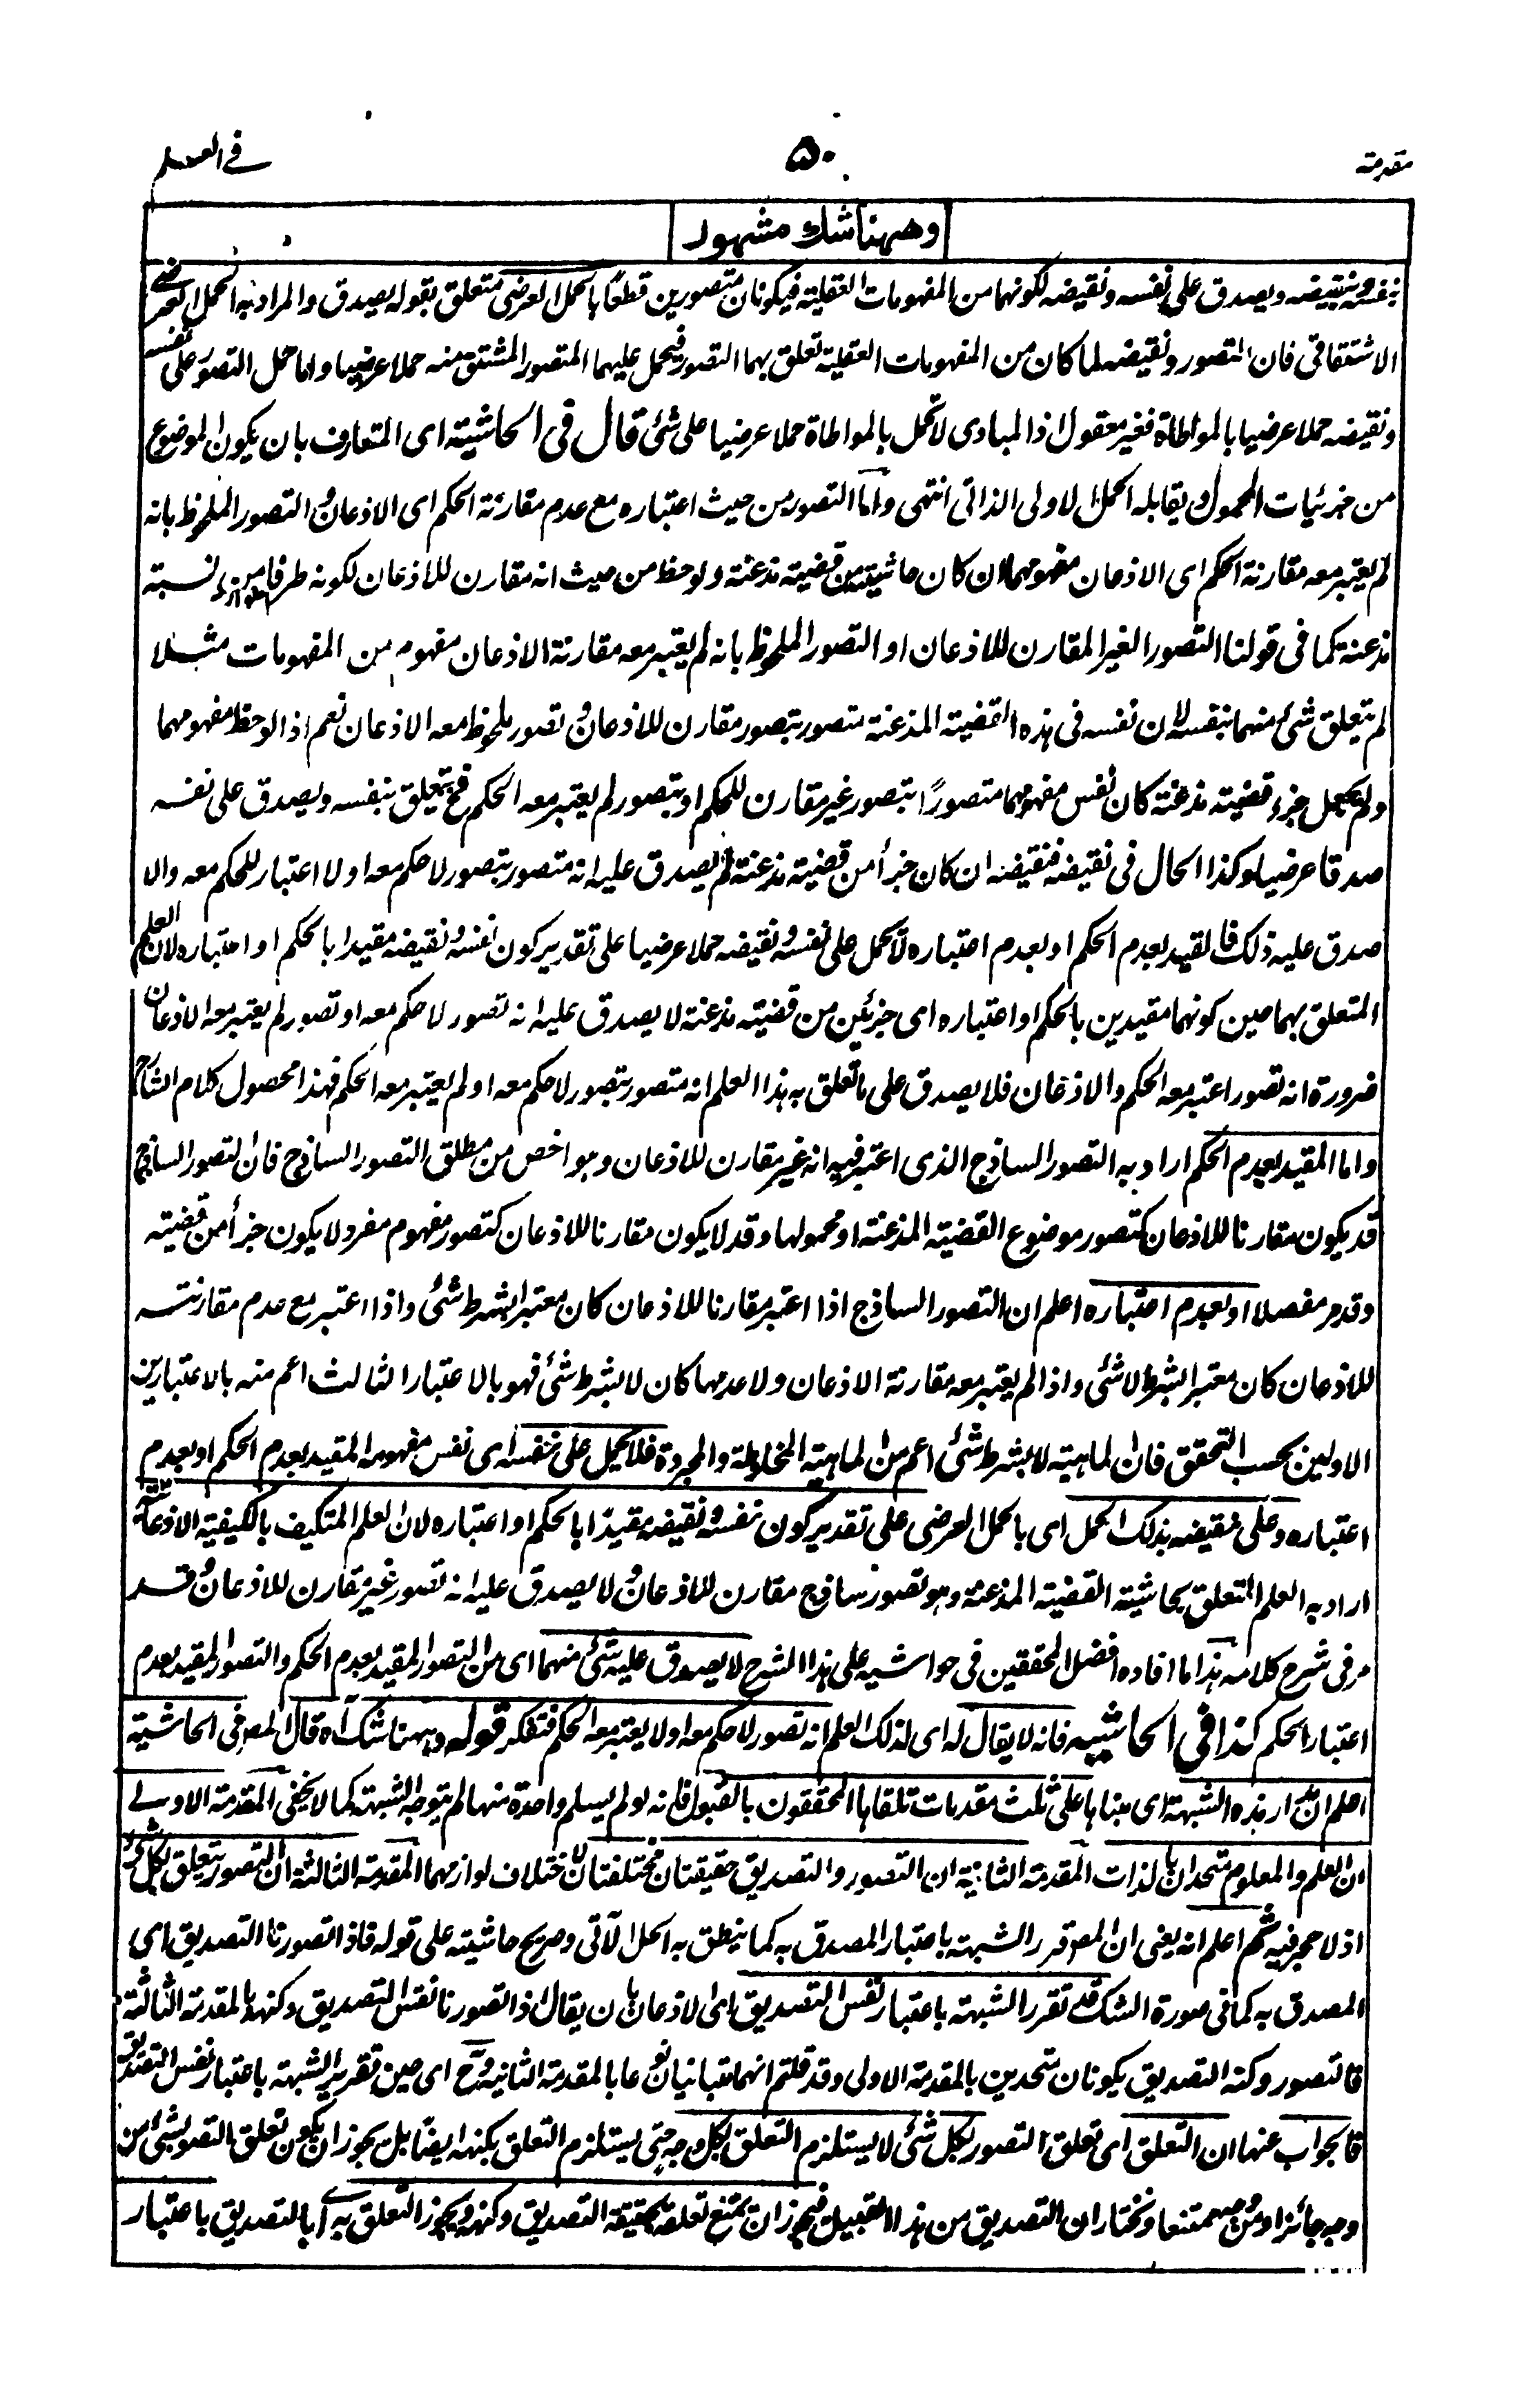 مقدمة
٥٠
فى العلم
وههنا شك مشهور
بنفسه ونقيضه ويصدق على نفسه ونقيضه لكونهما من المفهومات العقلية فيكونان متصورين قطعًا بالحمل العرضى متعلق بقوله يصدق والمراد به الحمل العرضى
الاشتقاقى فان التصور ونقيضه لما كان من المفهومات العقلية تعلق بهما التصور فيحمل عليهما المتصور المشتق منه حملا عرضيا واما حمل التصور على نفسه
ونقيضه حملا عرضيا بالمواطاة فغير معقول اذ المبادى لا تحمل بالمواطاة حملا عرضيا على شئ قال فى الحاشية اى المتعارف بان يكون الموضوع
من جزئيات المحمول ويقابله الحمل الاولى الذاتى انتهى واما التصور من حيث اعتباره مع عدم مقارنة الحكم اى الاذعان والتصور الملحوظ بانه
لم يعتبر معه مقارنة الحكم اى الاذعان مفهومهما ان كان حاشيتين من قضية مذعنة ولوحظ من حيث انه مقارن للاذعان لكونه طرفا من نسبة
مذعنة كما فى قولنا التصور الغير المقارن للاذعان او التصور الملحوظ بانه لم يعتبر معه مقارنة الاذعان مفهوم من المفهومات مثلا
لم يتعلق شئ منهما بنفسه لان نفسه فى هذه القضية المذعنة متصور بتصور مقارن للاذعان وتصور ملحوظ معه الاذعان نعم اذا لوحظ مفهومهما
ولم يجعل جزء قضية مذعنة كان نفس مفهومهما متصورًا بتصور غير مقارن للحكم او بتصور لم يعتبر معه الحكم فح يتعلق بنفسه ويصدق على نفسه
صدقا عرضيا وكذا الحال فى نقيضه فنقيضه ان كان جزأ من قضية مذعنة لم يصدق عليه انه متصور بتصور لا حكم معه او لا اعتبار للحكم معه والا
صدق عليه ذلك فالمقيد بعدم الحكم او بعدم اعتباره لا تحمل على نفسه ونقيضه حملا عرضيا على تقدير كون نفسه ونقيضه مقيدا بالحكم او اعتباره لان العلم
المتعلق بهما حين كونهما مقيدين بالحكم او اعتباره اى جزئين من قضية مذعنة لا يصدق عليه انه تصور لا حكم معه او تصور لم يعتبر معه الاذعان
ضرورة انه تصور اعتبر معه الحكم والاذعان فلا يصدق على ما تعلق به هذا العلم انه متصور بتصور لا حكم معه او لم يعتبر معه الحكم فهذا محصول كلام الشارح
واما المقيد بعدم الحكم اراد به التصور الساذج الذى اعتبر فيه انه غير مقارن للاذعان وهو اخص من مطلق التصور الساذج فان التصور الساذج
قد يكون مقارنا للاذعان كتصور موضوع القضية المذعنة او محمولها وقد لا يكون مقارنا للاذعان كتصور مفهوم مفرد لا يكون جزأ من قضية
وقد مر مفصلا او بعدم اعتباره اعلم ان التصور الساذج اذا اعتبر مقارنا للاذعان كان معتبرا بشرط شئ واذا اعتبر مع عدم مقارنته
للاذعان كان معتبرا بشرط لا شئ واذا لم يعتبر معه مقارنة الاذعان ولا عدمها كان لا بشرط شئ فهو بالاعتبار الثالث اعم منه بالاعتبارين
الاولين بحسب التحقق فان الماهية لا بشرط شئ اعم من الماهية المخلوطة والمجردة فلا يحمل على نفسه اى نفس مفهومه المقيد بعدم الحكم او بعدم
اعتباره وعلى نقيضه بذلك الحمل اى بالحمل العرضى على تقدير كون نفسه ونقيضه مقيدًا بالحكم او اعتباره لان العلم المتكيف بالكيفية الاذعانية
اراد به العلم المتعلق بحاشية القضية المذعنة وهو تصور ساذج مقارن للاذعان ولا يصدق عليه انه تصور غير مقارن للاذعان وقد
مر فى شرح كلامه هذا ما افاده افضل المحققين فى حواشيه على هذا الشرح لا يصدق عليه شئ منهما اى من التصور المقيد بعدم الحكم والتصور المقيد بعدم
اعتبار الحكم كذا فى الحاشيه فانه لا يقال له اى لذلك العلم انه تصور لا حكم معه او لا يعتبر معه الحكم فتفكر قوله وههنا شك آه قال المص فى الحاشية
اعلم ان مدار هذه الشبهة اى بنباها على ثلث مقدمات تلقاها المحققون بالقبول فانه لو لم يسلم واحدة منها لم يتوجه الشبهة كما لا يخفى المقدمة الاولى
ان العلم والمعلوم متحدان بالذات المقدمة الثانية ان التصور والتصديق حقيقتان مختلفتان لاختلاف لوازمهما المقدمة الثالثة ان التصور يتعلق بكل شئ
اذ لا حجر فيه ثم اعلم انه يعنى ان المص قرر الشبهة باعتبار المصدق به كما ينطق به الحل الآتى وصريح حاشيته على قوله فاذا تصورنا التصديق اى
المصدق به كما فى صورة الشك وقد تقرر الشبهة باعتبار نفس التصديق اى الاذعان بان يقال اذا تصورنا نفس التصديق وكنهه بالمقدمة الثالثة
فالتصور وكنه التصديق يكونان متحدين بالمقدمة الاولى وقد قلتم انهما متبانيان نوعا بالمقدمة الثانية وح اى حين تقرير الشبهة باعتبار نفس التصديق
فالجواب عنها ان التعلق اى تعلق التصور بكل شئ لا يستلزم التعلق بكل وجه حتى يستلزم التعلق بكنهه ايضًا بل يجوز ان يكون تعلق التصور بشئ من
وجه جائزا ومن وجه ممتنعا ونختار ان التصديق من هذا القبيل فيجوز ان يمتنع تعلقه بحقيقة التصديق وكنهه ويجوز التعلق به اى بالتصديق باعتبار